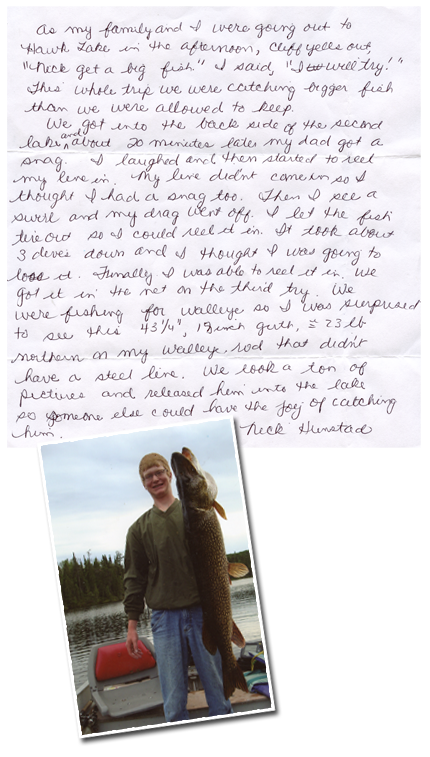 As my family and I were going out to
Hawk Lake in the afternoon, Cliff yells out,
"Nick get a big fish." I said, "I will try!"
This whole trip we were catching bigger fish
than we were allowed to keep.
We got into the back side of the second
lake and about 20 minutes later my dad got a
snag. I laughed and then started to reel
my line in. My line didn't come in so I
thought I had a snag too. Then I see a
swirl and my drag went off. I let the fish
tire out so I could reel it in. It took about
3 dives down and I thought I was going to
loose it. Finally I was able to reel it in. We
got it in the net on the third try. We
were fishing for walleye so I was surprised
to see this 43 1/4", 19 inch girth, ≈ 23 lb
northern on my walleye rod that didn't
have a steel line. We took a ton of
pictures and released him into the lake
so someone else could have the joy of catching
him. Nick Hunstad